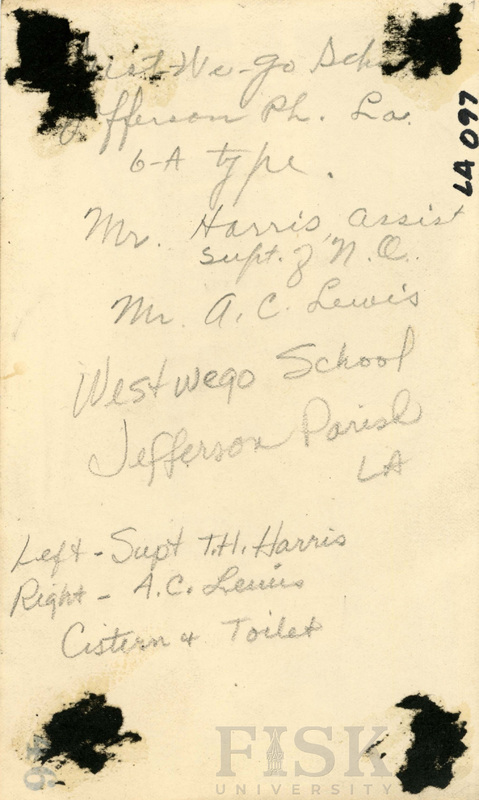 West-We-go Sch
Jefferson Ph. La.
6-A type.
Mr. Harris, assist
supt. of N.O.
Mr. A.C. Lewis
Westwego School
Jefferson Parish
LA
Left - Supt T.H. Harris
Right - A.C. Lewis
Cistern & Toilet
LA 097
FISK
UNIVERSITY